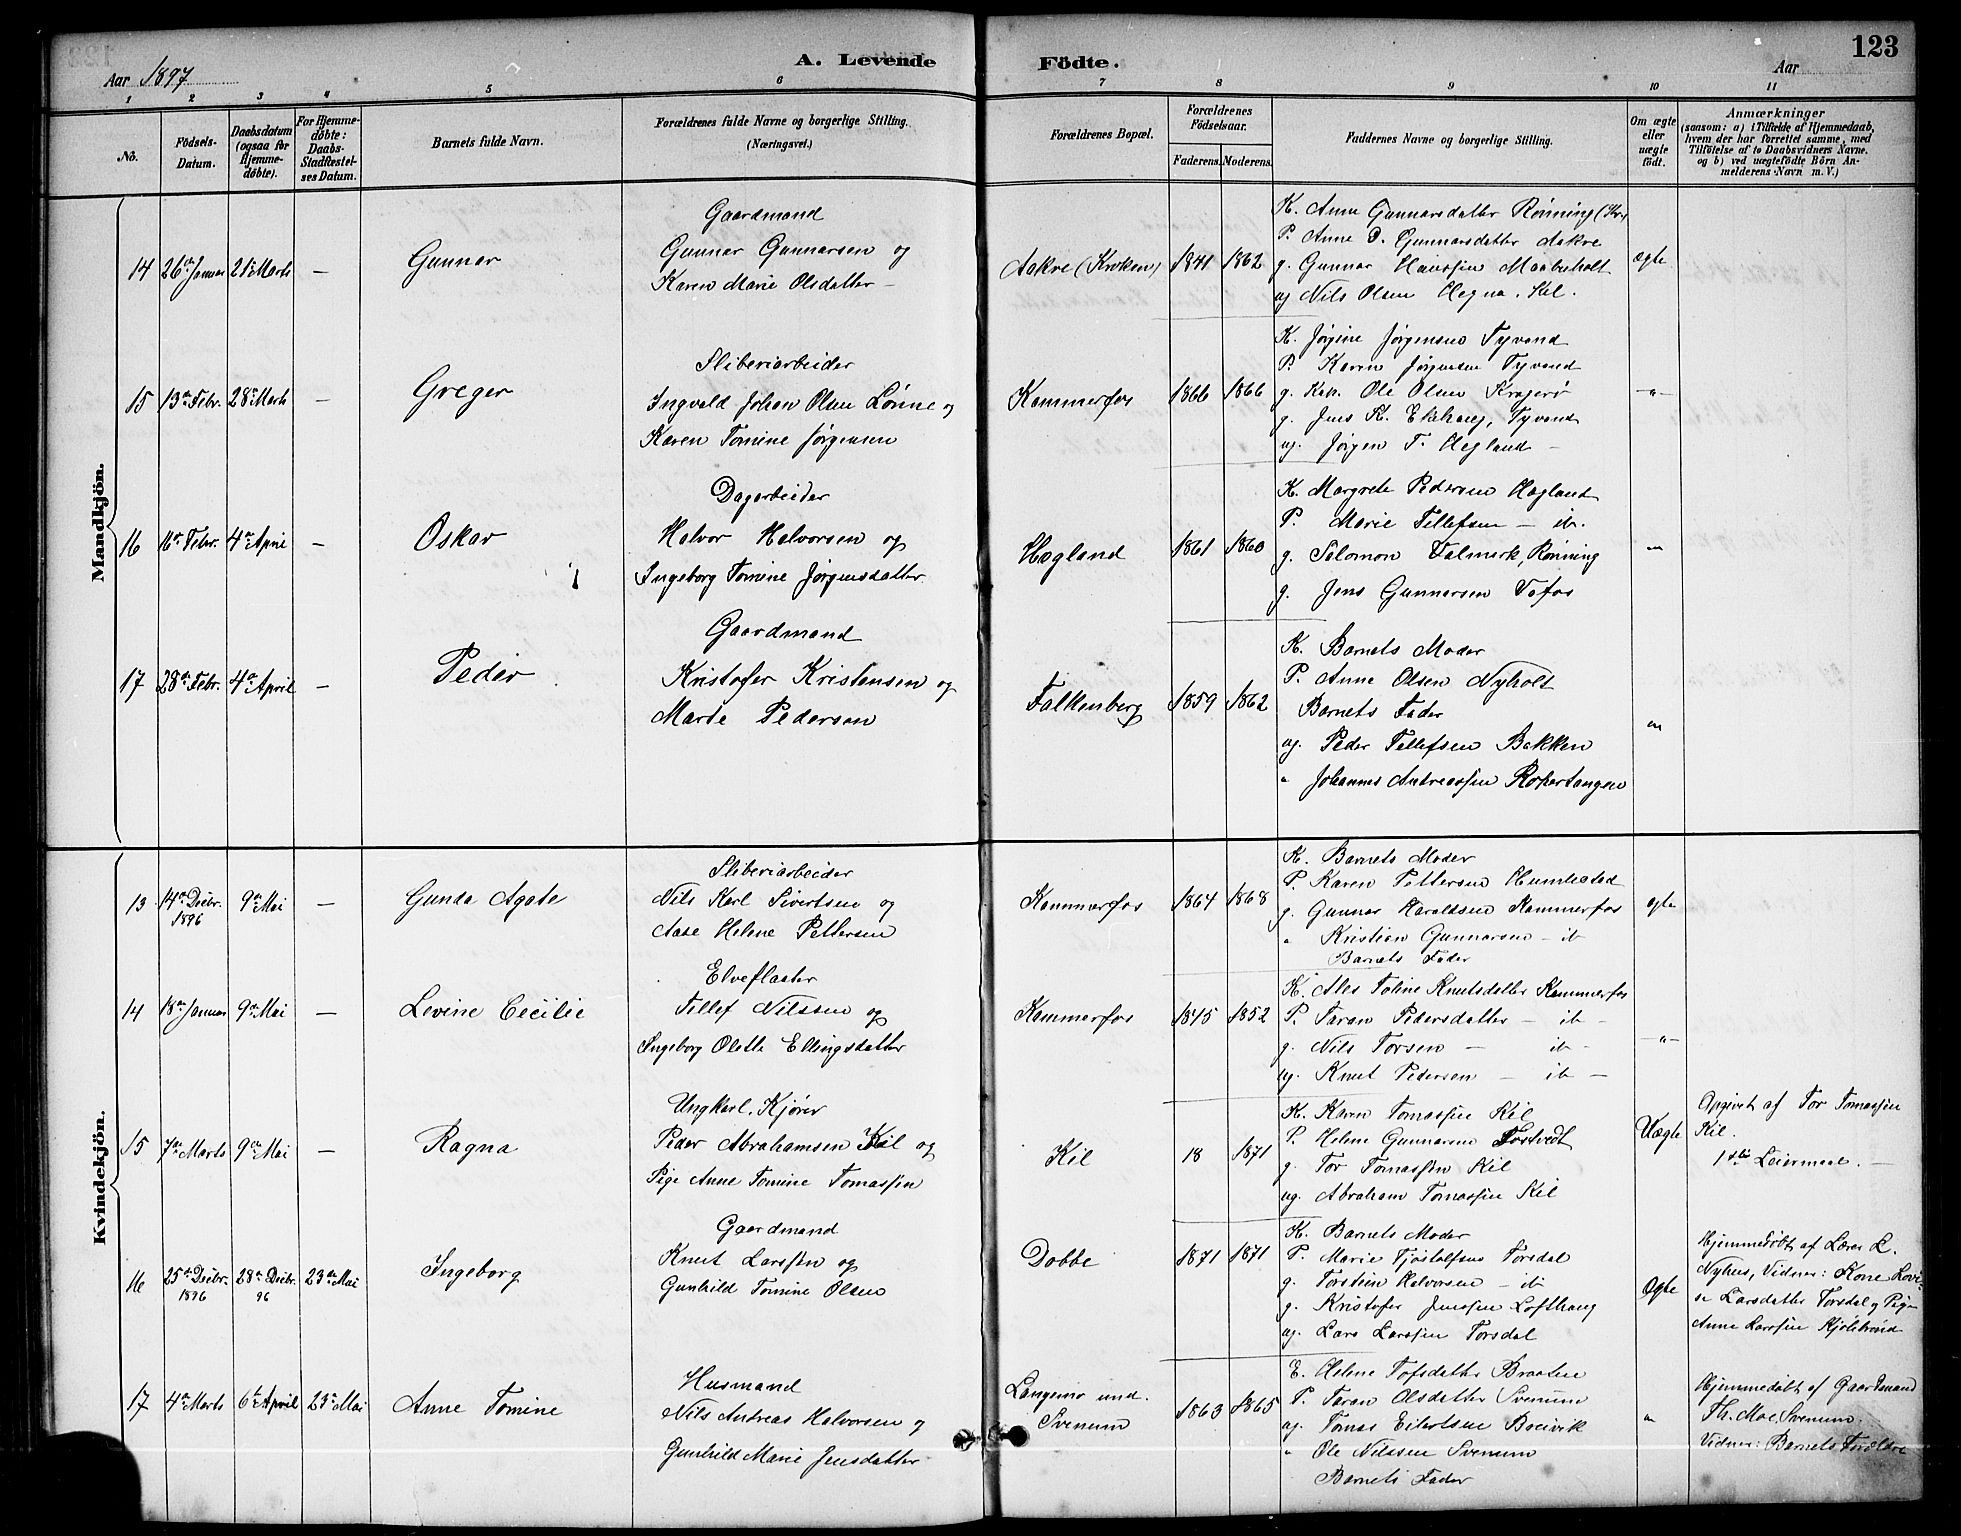 123
A. Levende Födte.
Aar 1897
Aar
1 2 3 4 5 6 7 8 9 10 11
No.
Födsels-Datum.
Daabsdatum (ogsaa for Hjemme-døbte).
For Hjemme-döbte: Daabs-Stadfæstel-ses Datum.
Barnets fulde Navn.
Forældrenes fulde Navne og borgerlige Stilling.
(Næringsvei.)
Forældrenes Bopæl.
Forældrenes Födselsaar.
Faderens. Moderens.
Faddernes Navne og borgerlige Stilling.
Om ægte eller uægte födt.
Anmærkninger
(saasom: a) i Tilfælde af Hjemmedaab,
hvem der har forrettet samme, med
Tilföielse af to Daabsvidners Navne.
og b) ved uægtefödte Börn An-
melderens Navn m. V.)
Mandkjön.
14 26de Januar 21de Marts —
Gunnar
Gaardmand
Gunnar Gunnarsen og
Karen Marie Olsdatter —
Aakre (Kroken) 1841 1862
K. Anne Gunnarsdatter Rönning (Kr.)
P. Anne O. Gunnarsdatter Aakre
g. Gunnar Hanssen Maabeholt
og Nils Olsen Hegna. Kil.
ægte
15 13de Febr. 28de Marts —
Greger
Sliberiarbeider
Ingvald Johan Olsen Lönne og
Karen Tomine Jørgensen
Kammerfos 1866 1866
K. Jørgine Jørgensen Tyvand
P. Karen Jørgensen Tyvand
g. Kap. Ole Olsen Kragerø
g. Jens K. Ekhaug, Tyvand
og. Jørgen T. Hegland —
—"—
16 16de Febr. 4de April —
Oskar
Dagarbeider
Halvor Halvorsen og
Ingeborg Tomine Jørgensdatter
Hegland 1861 1860
K. Margrete Pedersen Hegland
P. Marie Tellefsen — ib.
g. Salomon Valmark, Rönning
g. Jens Gunnarsen Vafos
"
17 28de Febr. 4de April —
Peder
Gaardmand
Kristofer Kristensen og
Marte Pedersen
Falkenberg 1859 1862
K. Barnets Moder
P. Anne Olsen Nyholt
Barnets Fader
og. Peder Tellefsen Bakken
" Johannes Andreassen Roportangen
"
Kvindekjön.
13 14de Decbr. 1896 9de Mai —
Gunda Agate
Sliberiarbeider
Nils Karl Sivertsen og
Aase Helene Pettersen
Kammerfos 1864 1868
K. Barnets Moder
P. Karen Pettersen Humlestad
g. Gunnar Haraldsen Kammerfos
" Kristian Gunnarsen — ib
Barnets Fader
ægte
14 18de Januar 9de Mai —
Levine Cecilie
Elveflaater
Tellef Nilssen og
Ingeborg Olette Ellingsdatter
Kammerfos 1845 1852
K. Ales Toline Knutsdatter Kammerfos
P. Taran Pedersdatter — ib —
g. Nils Torsen — ib —
og. Knut Pedersen — ib —
—"—
15 7de Marts 9de Mai —
Ragna
Ungkarl. Kjører
Peder Abrahamsen Kil og
Pige Anne Tomine Tomassen
Kil 18 1871
K. Karen Tomassen Kil
P. Helene Gunnarsen Tostvedt
g. Tor Tomassen Kil
og. Abraham Tomassen Kil
Uægte
Opgivet af Tor Tomassen
Kil.
1ste Leiermaal. —
16 25de Decbr. 1896 28de Decbr. 96 23de Mai
Ingeborg
Gaardmand
Knut Larssen og
Gunhild Tomine Olsen
Dobbe 1871 1871
K. Barnets Moder
P. Marie Tjøstolfsen Torsdal
g. Torstein Halvorsen — ib
g. Kristofer Jenssen Lofthaug
og. Lars Larssen Torsdal
Ægte
Hjemmedøbt af Lærer L.
Nyhus, Vidner: Kone Lovi-
se Larsdatter Torsdal og Pige
Anne Larssen Kjølebrønd
17 4de Marts 6te April 23de Mai
Anne Tomine
Husmand
Nils Andreas Halvorsen og
Gunhild Marie Jensdatter
Langemo und. Svenum 1863 1865
E. Helene Tofsdatter Braaten
P. Taran Olsdatter Svenum
og. Tomas Eilertsen Breivik
" Ole Nilssen Svenum
Barnets Fader
"
Hjemmedøbt af Gaardmand
Th. Moe, Svenum.
Vidner: Barnets Forældre